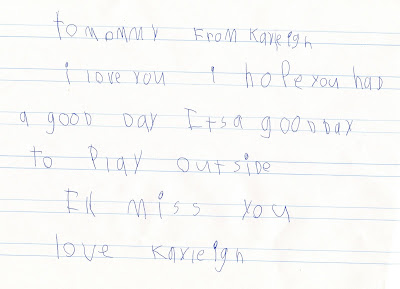 toMommy FroM Karleigh
i love you i hope you had
a good Day Itsa goodDay
to Play outside
Ill miss you
love Karleigh